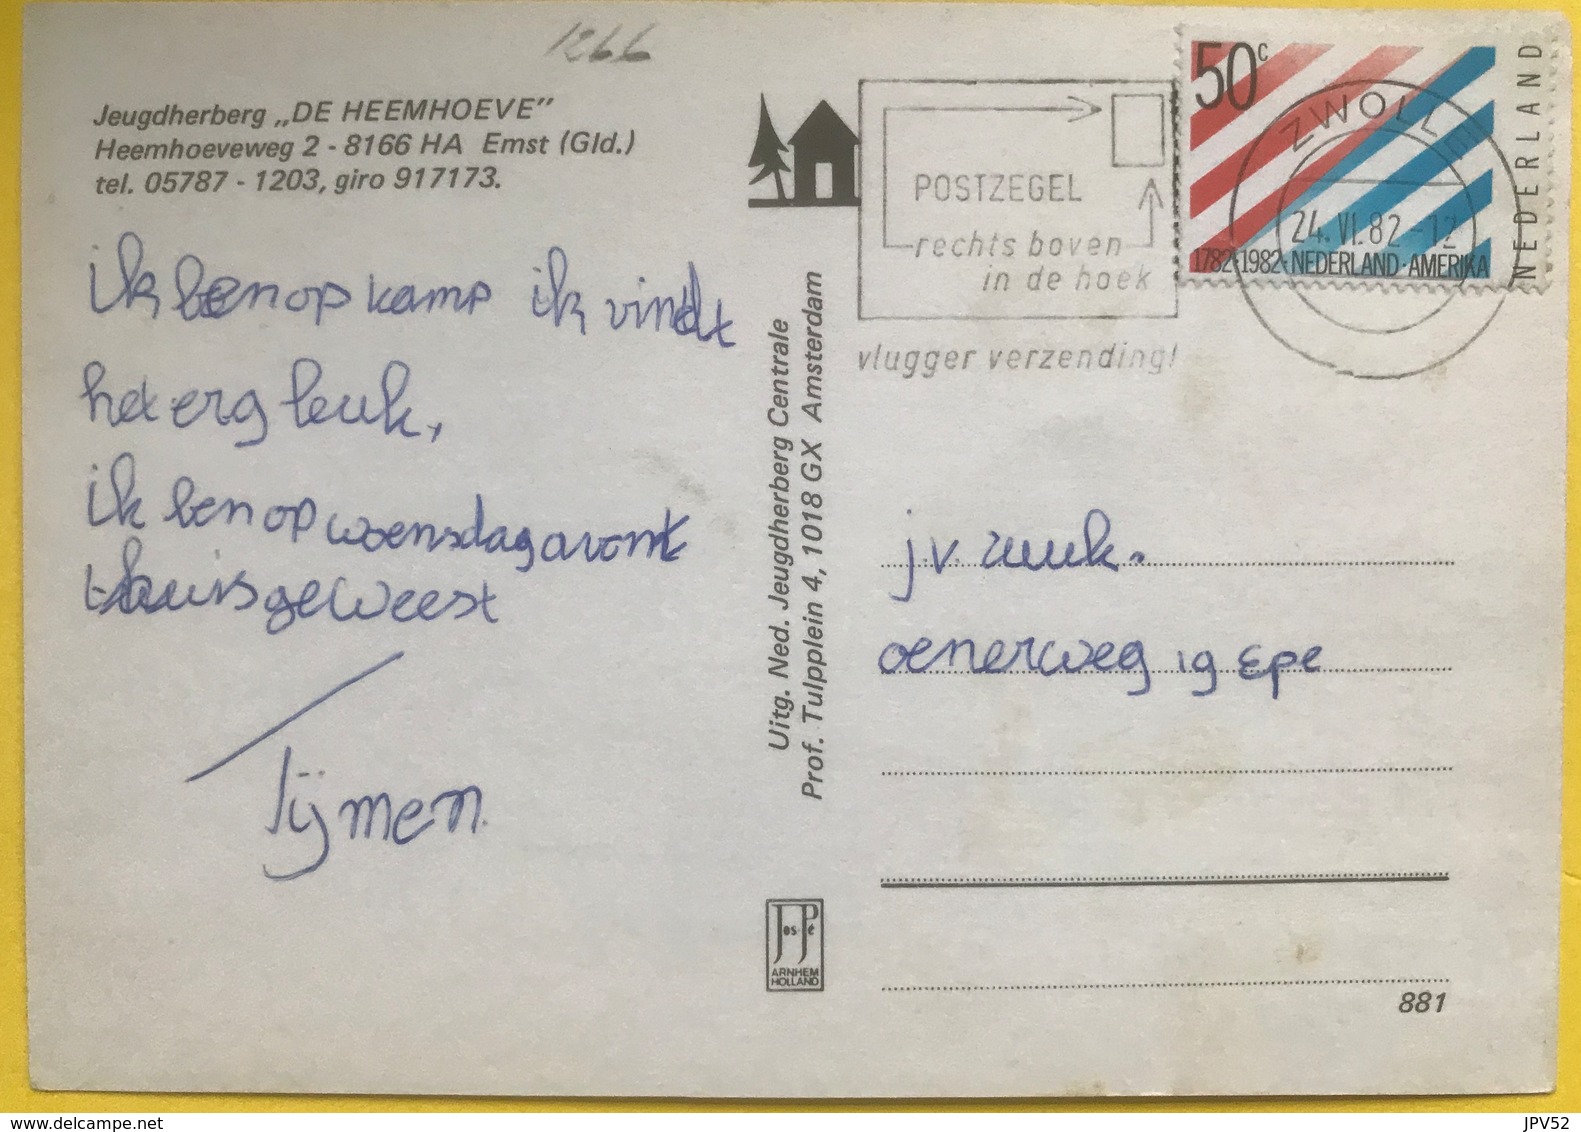 1266
Jeugdherberg „DE HEEMHOEVE”
Heemhoeveweg 2 - 8166 HA Emst (Gld.)
tel. 05787 - 1203, giro 917173.
ik ben op kamp ik vindt
het erg leuk,
ik ben op woensdag avont
thuis geweest
Tijmen.
Uitg. Ned. Jeugdherberg Centrale
Prof. Tulpplein 4, 1018 GX Amsterdam
Jos-Pé
ARNHEM
HOLLAND
POSTZEGEL
rechts boven
in de hoek
vlugger verzending!
50c
NEDERLAND
1782·1982·NEDERLAND·AMERIKA
ZWOLLE
24.VI.82-12
j.v.
oenerweg 19 Epe
881
delcampe.net
JPV52